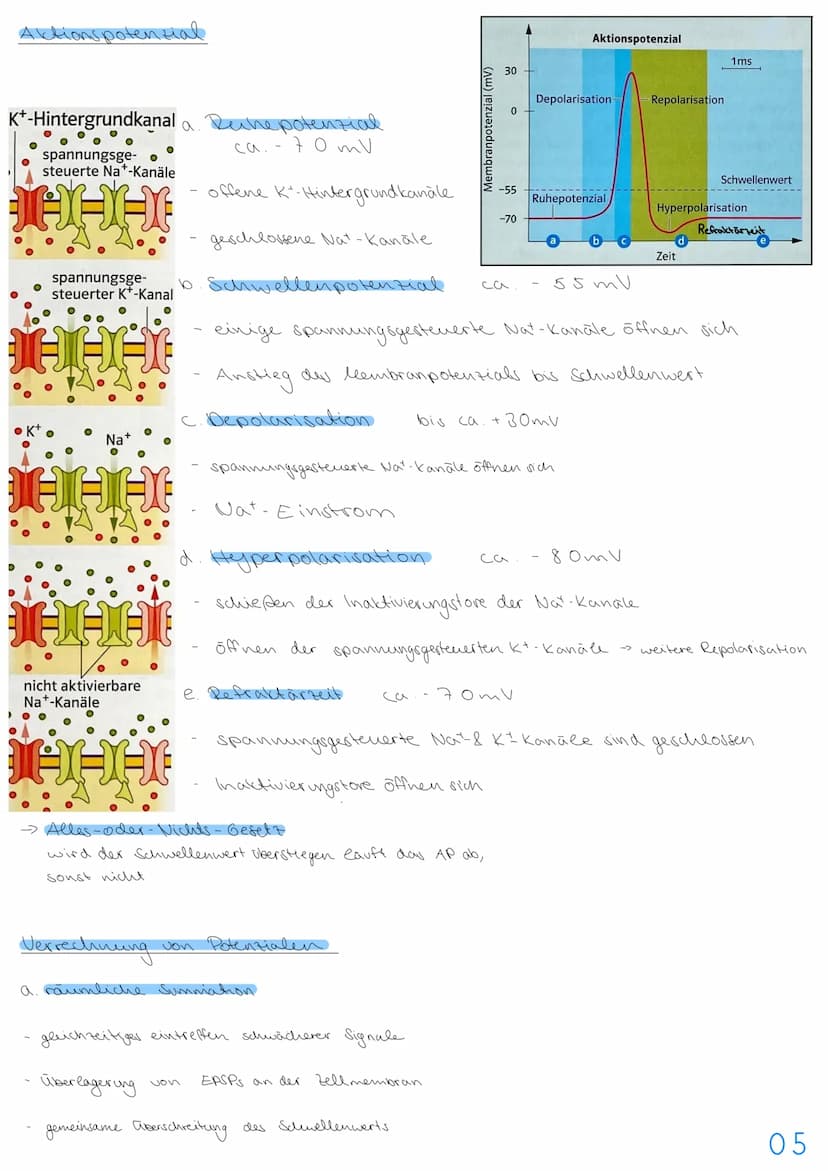 Aktionspotenzial
Aktionspotenzial
1ms
Membranpotenzial (mV)
30
0
-55
-70
Depolarisation
Repolarisation
Schwellenwert
Ruhepotenzial
Hyperpolarisation
Refraktärzeit
a b c d e
Zeit
K⁺-Hintergrundkanal
spannungsge-
steuerte Na⁺-Kanäle
a. Ruhepotenzial
ca. - 70 mV
- offene K⁺-Hintergrundkanäle
- geschlossene Na⁺-Kanäle
spannungsge-
steuerter K⁺-Kanal
b. Schwellenpotenzial ca. - 55 mV
- einige spannungsgesteuerte Na⁺-Kanäle öffnen sich
- Anstieg des Membranpotenzials bis Schwellenwert
K⁺
Na⁺
c. Depolarisation bis ca. +30mV
- spannungsgesteuerte Na⁺-Kanäle öffnen sich
- Na⁺-Einstrom
d. Hyperpolarisation ca. - 80mV
- schießen der Inaktivierungstore der Na⁺-Kanäle
- öffnen der spannungsgesteuerten K⁺-Kanäle → weitere Repolarisation
nicht aktivierbare
Na⁺-Kanäle
e. Refraktärzeit ca. - 70mV
- spannungsgesteuerte Na⁺- & K⁺-Kanäle sind geschlossen
- Inaktivierungstore öffnen sich
→ Alles-oder-Nichts-Gesetz
wird der Schwellenwert überstiegen läuft das AP ab,
sonst nicht
Verrechnung von Potenzialen
a. räumliche Summation
- gleichzeitiges eintreffen schwächerer Signale
- Überlagerung von EPSPs an der Zellmembran
- gemeinsame Überschreitung des Schwellenwerts
05